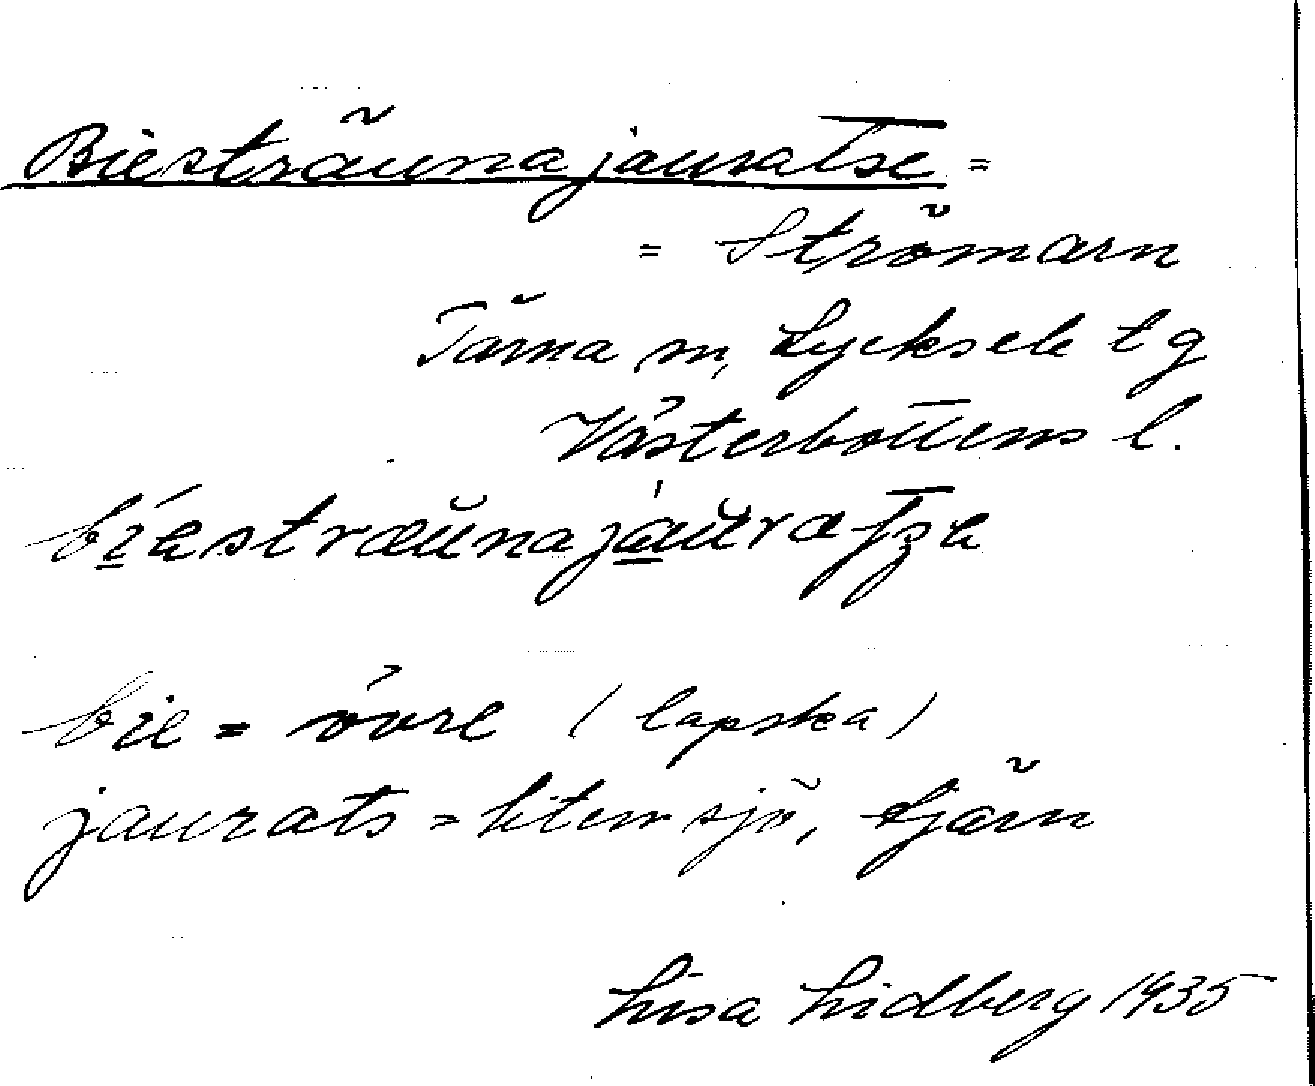 Biesträunajauratse =
= Strömarn
Tärna sn, Lycksele tg
Västerbottens l.
bie = övre (lapska)
jaurats = liten sjö, tjärn
Lisa Lidberg 1935